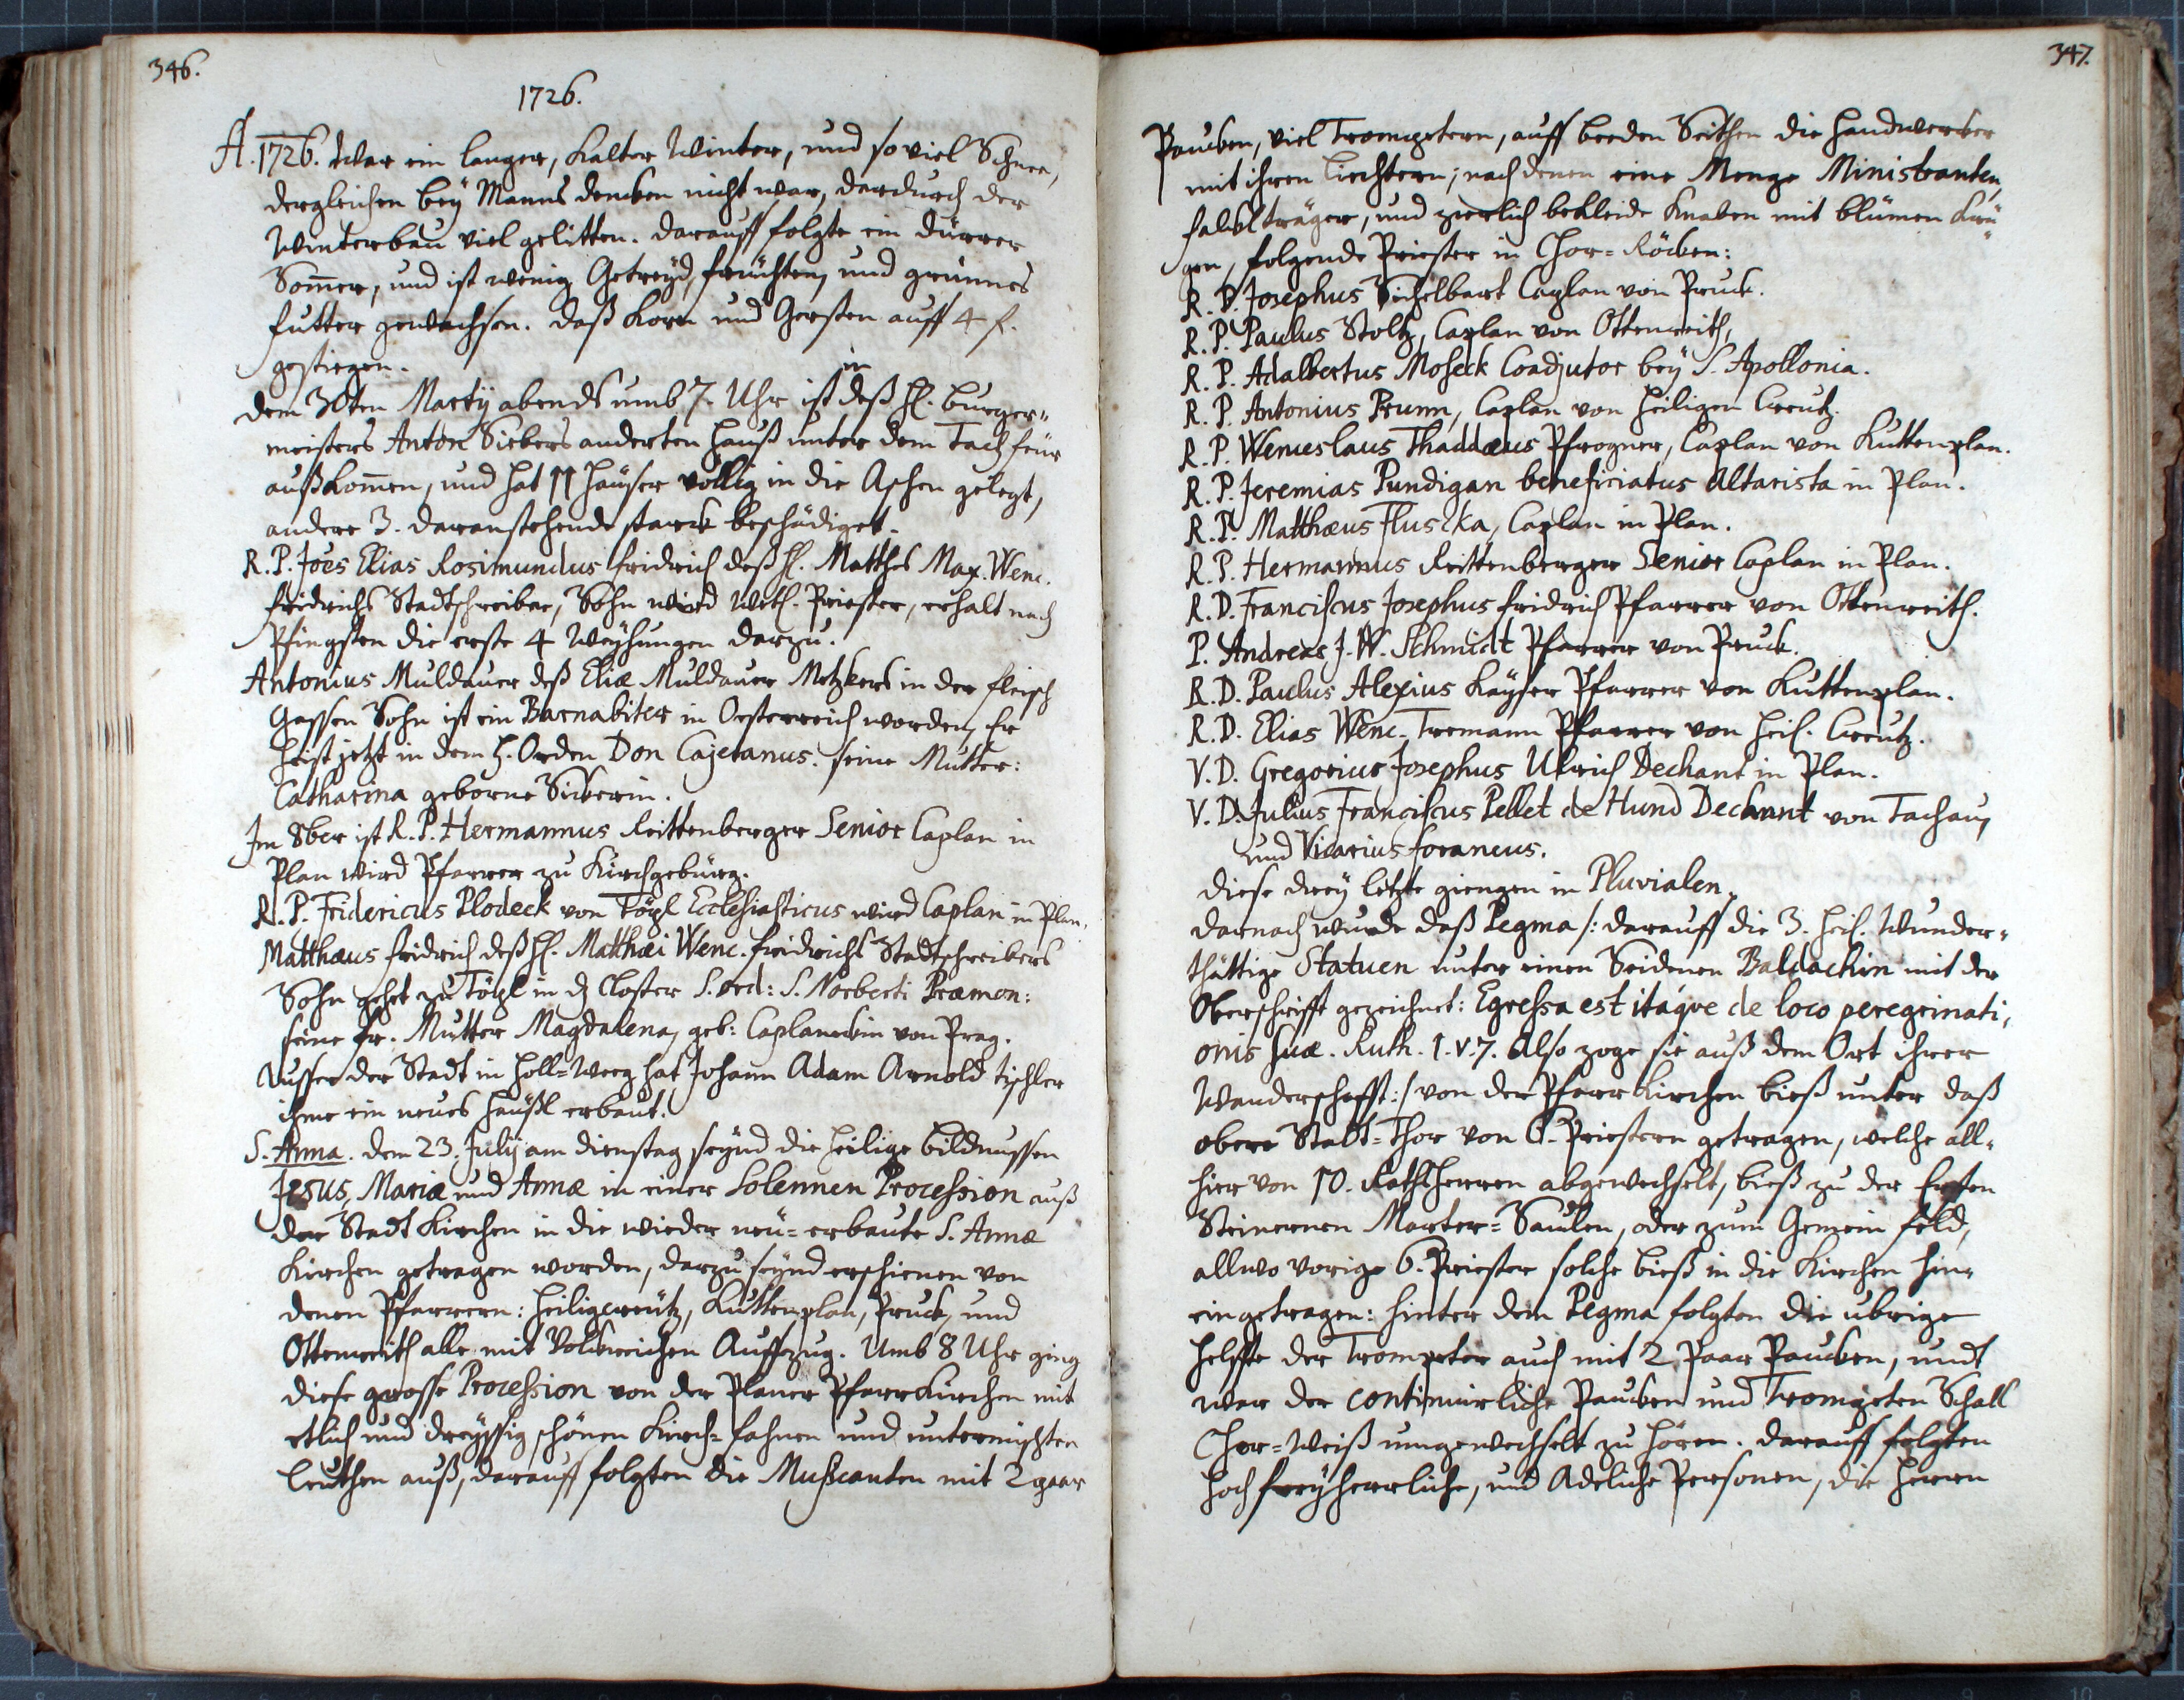 346.
1726.
A. 1726. War ein langer, kalter Winter, und so viel Schnee,
dergleichen bey Manns dencken nicht war, dardurch der
Winterbau viel gelitten. darauff folgte ein dürrer
Som̄er, und ist wenig Getreyd, früchten, und grünnes
futter gewachsen. daß Korn und Gersten auff 4 f.
gestiegen.
dem 30ten Martÿ abends umb 7. Uhr ist in deß H. burger-
meisters Anton Siebers anderten hauß unter dem Tach feür
außkom̄en, und hat 11 häuser völlig in die Aschen gelegt,
andere 3. daranstehende starck beschädiget.
R. P. Joēs Elias Rosimundus fridrich deß H. Matthes Max. Wenc.
fridrichs Stadtschreiber, Sohn wird Welt. Priester, erhalt nach
Pfingsten die erste 4 Weyhungen darzu.
Antonius Muldauer deß Eliæ Muldauer Metzkers in der fleisch
Gassen Sohn ist ein Barnabiter in Oesterreich worden, Er
heist jetzt in dem H. Orden Don Cajetanus. seine Mutter:
Catharina geborne Sieberin.
Im 8ber ist R. P. Hermannus Reittenberger Senior Caplan in
Plan wird Pfarrer zu Kirchgebürg.
R. P. Fridericus Plodeck von Töpl Ecclesiasticus wird Caplan in Plan.
Matthæus fridrich deß H. Matthæi Wenc. fridrichs Stadtschreibers
Sohn gehet zu Töpl in dz Closter S. ord: S. Norberti Præmon:
seine fr. Mutter Magdalena, geb: Caplanekin von Prag.
Ausser der Stadt in Holl-Weeg hat Johann Adam Arnold tischler
ihme ein neues häußl erbaut.
S. Anna. dem 23. Julÿ am dienstag seynd die heilige bildnussen
Jesus, Mariæ und Annæ in einer Solennen Procession auß
der Stadt Kirchen in die wieder neu-erbaute S. Annæ
Kirchen getragen worden, darzu seynd erschienen von
denen Pfarreren: Heiligcreütz, Kuttenplan, Pruck, und
Ottenreith alle mit Volckreichen Auffzug. Umb 8 Uhr ging
diese grosse Procession von der Planer Pfarr Kirchen mit
etlich und dreyssig schönen Kirch-fahnen und untermischten
leuthen auß, darauff folgten die Musicanten mit 2 paar
347.
Paucken, viel Trompetern, auff beeden Seithen die handwercker
mit ihren liechtern; nach denen eine Menge Ministranten,
fackltrâger, und zierlich bekleide Knaben mit blümen Krü-
gen, folgende Priester in Chor-Röcken:
R. D. Josephus Sichelbart Caplan von Pruck.
R. P. Paulus Stoltz, Caplan von Ottenreith,
R. P. Adalbertus Moseck Coadjutor bey S. Apollonia.
R. P. Antonius Prunn, Caplan von Heiligen Creutz.
R. P. Wenceslaus Thaddæus Pfrogner, Caplan von Kuttenplan.
R. P. Jeremias Pundigan beneficiatus Altarista in Plan.
R. P. Matthæus Fluscka, Caplan in Plan.
R. P. Hermannus Reittenberger Senior Caplan in Plan.
R. D. Franciscus Josephus fridrich Pfarrer von Ottenreith.
P. Andreas J. W. Schmidt Pfarrer von Pruck.
R. D. Paulus Alexius Käyser Pfarrer von Kuttenplan.
R. D. Elias Wenc. Tremann Pfarrer von Heil. Creutz.
V. D. Gregorius Josephus Ulrich Dechant in Plan.
V. D. Julius Franciscus Pellet de Hund Dechant von Tachau,
und Vicarius foraneus.
Diese drey letzte giengen in Pluvialen.
darnach wurde daß Pegma /: darauff die 3. Heil. Wunder-
thättige Statuen unter einen Seidenen Baldachin mit der
Oberschrifft gezeichnet: Egressa est itáqve de loco peregrinati-
onis suæ. Ruth. 1. v. 7. Also zoge sie auß dem Ort ihrer
Wanderschafft :/ von der Pfarr Kirchen bieß unter daß
obere Stadt-Thor von 6. Priestern getragen, welche all-
hier von 10. Rathsherren abgewechselt, bieß zu der Ersten
Steinernen Marter-Saulen, oder zum Gemein feld,
allwo vorige 6. Priester solche bieß in die Kirchen hin-
eingetragen: hinter dem Pegma folgten die ubrige
helffte der Trompeter auch mit 2 Paar Paucken, undt
war der continuirliche Paucken und Trompeten Schall
Chor-Weiß umgewechselt zu hören. darauff folgten
hoch freyherrliche, und Adeliche Personen, die herren